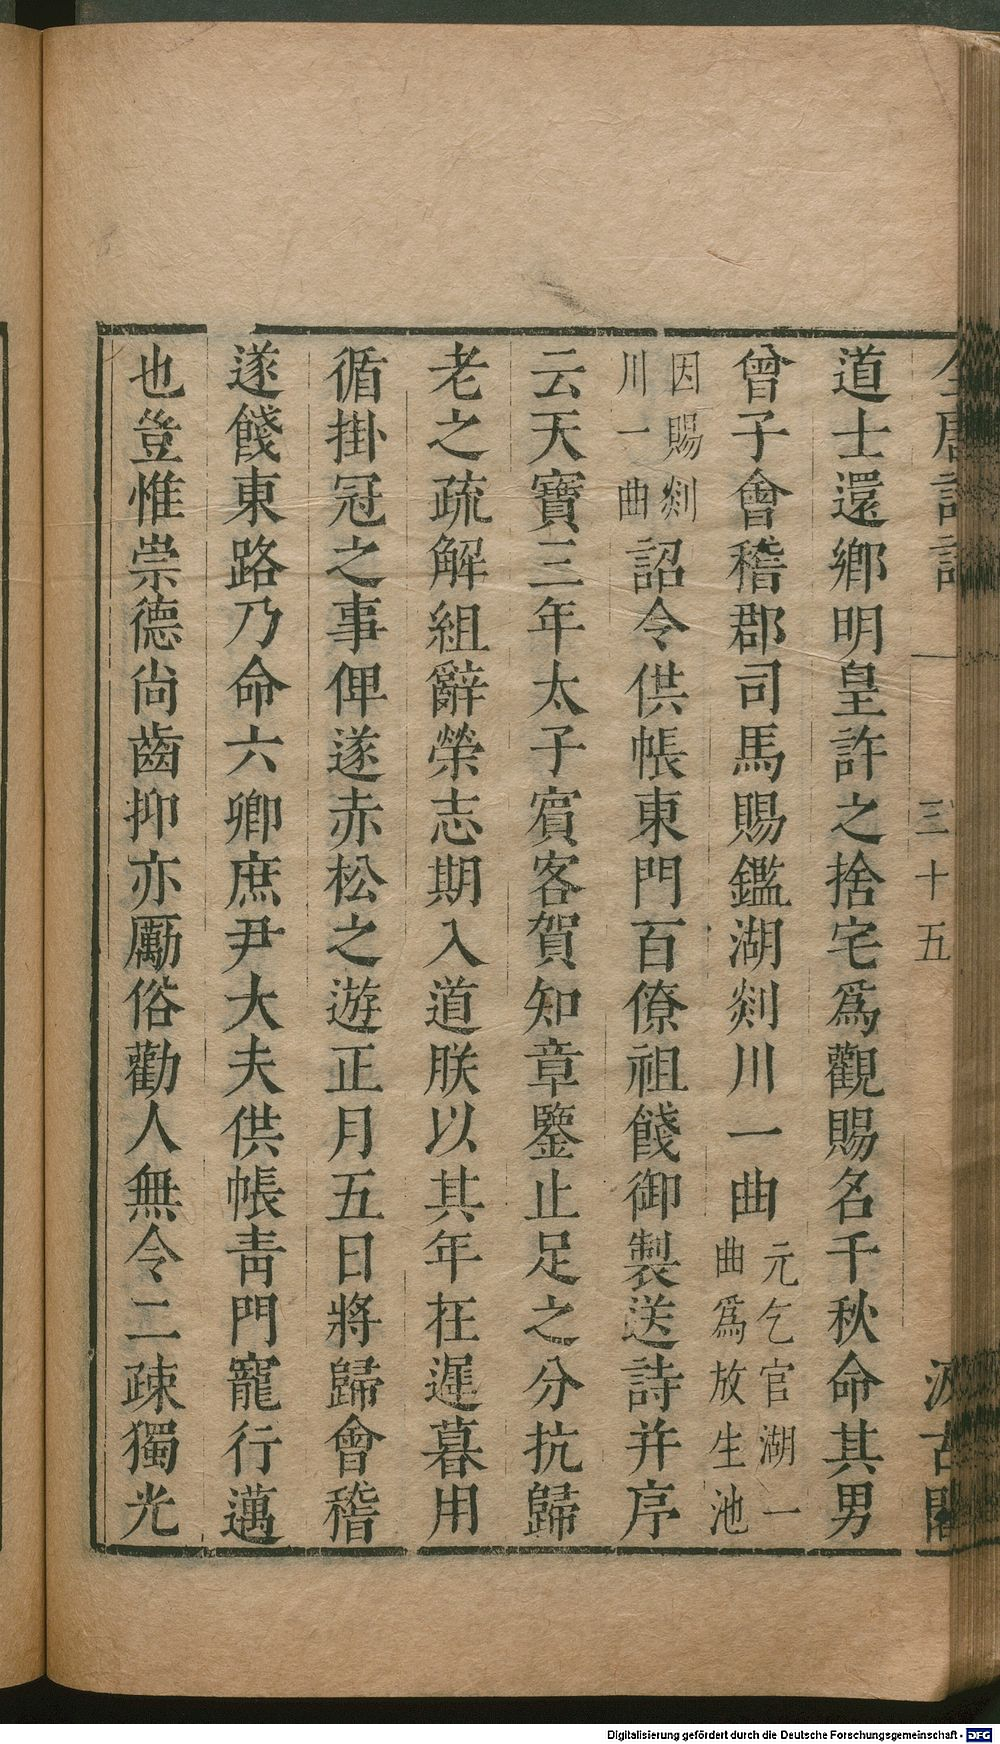 全唐詩話 一 三十五 汲古閣
道士還鄉明皇許之捨宅爲觀賜名千秋命其男
曾子會稽郡司馬賜鑑湖剡川一曲元乞官湖一曲爲放生池
因賜剡川一曲詔令供帳東門百僚祖餞御製送詩并序
云天寶三年太子賓客賀知章鑒止足之分抗歸
老之疏解組辭榮志期入道朕以其年在遲暮用
循掛冠之事俾遂赤松之遊正月五日將歸會稽
遂餞東路乃命六卿庶尹大夫供帳青門寵行邁
也豈惟崇德尚齒抑亦勵俗勸人無令二疎獨光
Digitalisierung gefördert durch die Deutsche Forschungsgemeinschaft - DFG